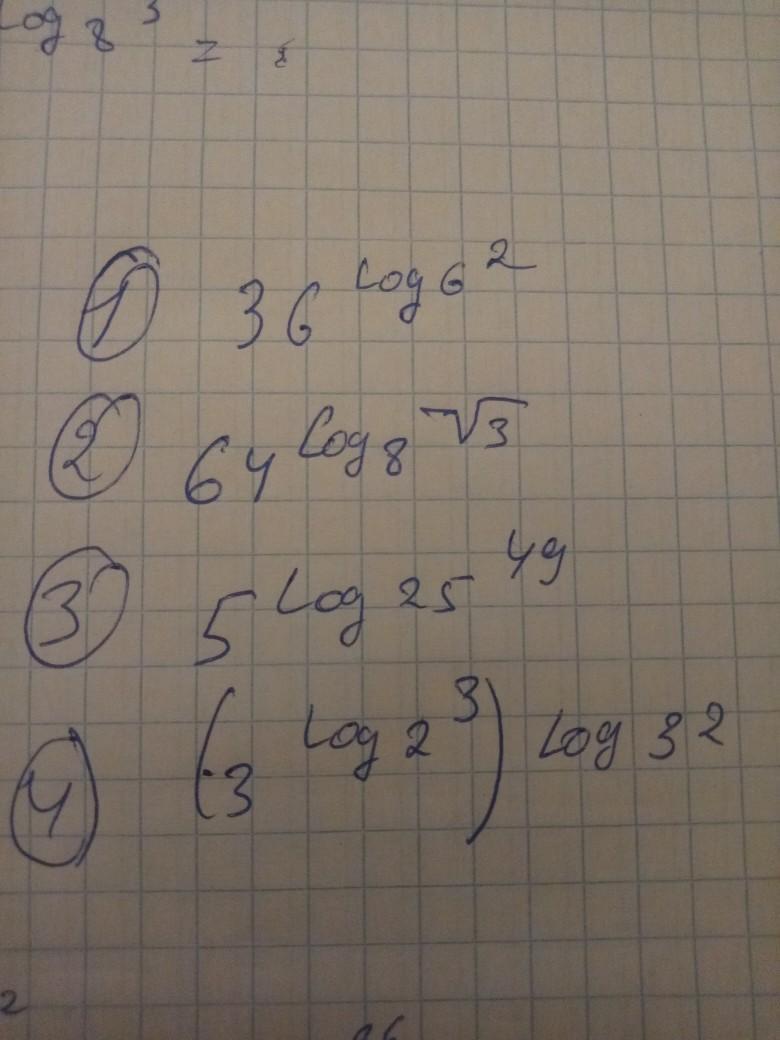 log₈ 3 =
① 36^(log₆ 2)
② 64^(log₈ √3)
③ 5^(log₂₅ 49)
④ (3^(log₂ 3))^(log₃ 2)
2